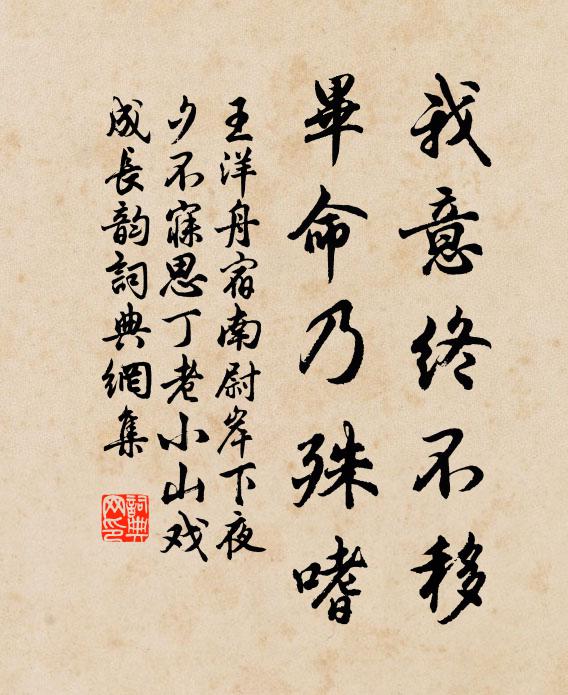 我意終不移
畢命乃殊嗜
王洋舟宿南尉岸下夜
夕不寐思丁老小山戏
成長韵詞典網集
詞典
网印